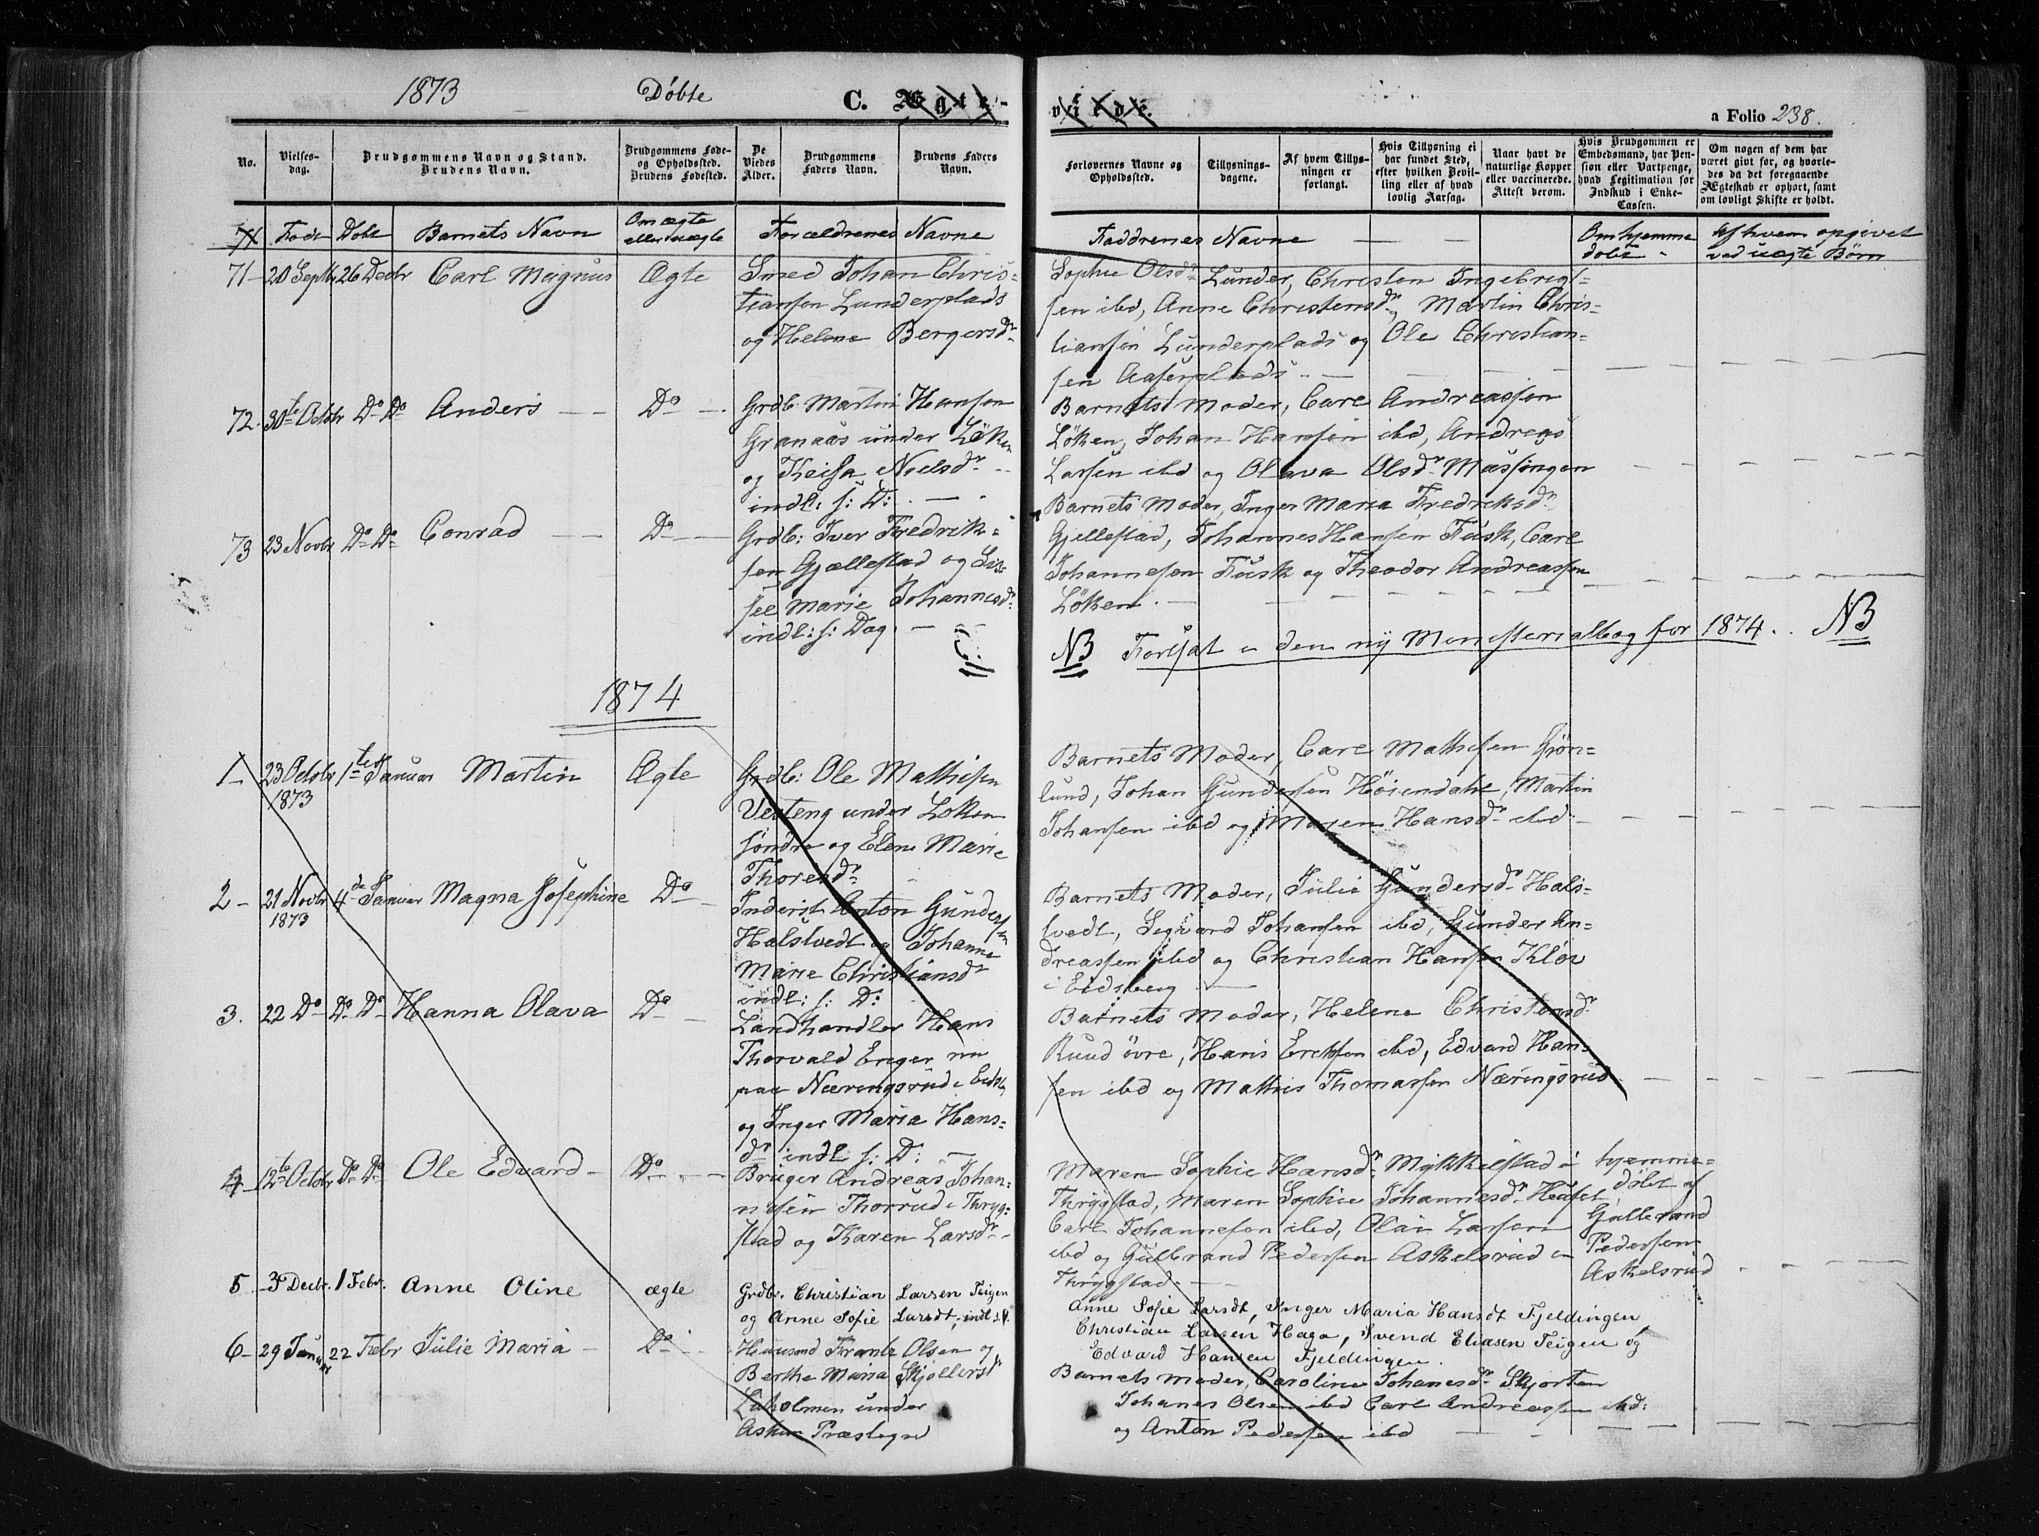 1873 Döbte C. Ægte-
viede.
a Folio 238.
No.
Vielses-
dag.
Brudgommens Navn og Stand.
Brudens Navn.
Brudgommens Føde-
og Opholdssted.
Brudens Fødested.
De
Viedes
Alder.
Brudgommens
Faders Navn.
Brudens Faders
Navn.
Forlovernes Navne og
Opholdssted.
Tillysnings-
dagene.
Af hvem Tillys-
ningen er
forlangt.
Hvis Tillysning ei
har fundet Sted,
efter hvilken Bevil-
ling eller af hvad
lovlig Aarsag.
Naar havt de
naturlige Kopper
eller vaccinerede.
Attest derom.
Hvis Brudgommen er
Embedsmand, har Pen-
sion eller Vartpenge,
hvad Legitimation for
Indskud i Enke-
Cassen.
Om nogen af dem har
været gift før, og hvorle-
des da det foregaaende
Ægteskab er ophørt, samt
om lovligt Skifte er holdt.
Födt Döbt Barnets Navn
Om ægte
eller uægte
Forældrenes Navne
Faddrenes Navne — — —
Om hjemme
döbt
Af hvem opgivet
ved uægte Børn
71 - 20 Septbr 26 Decbr Carl Magnus Ægte
Smed Johan Chris-
tiansen Lunderplads
og Helene Bergersdr
Sophie Olsdr Lunder, Christen Ingebrigt-
sen ibd, Anne Christensdr, Martin Chris-
tiansen Lunderplads og Ole Christian-
sen Aaserplads
72. 30te Octbr Do Do Anders — — Do —
Grdb: Martin Hansen
Granaas under Löken
og Keisa Nielsdr
indl: s: D:
Barnets Moder, Carl Andreassen
Löken, Johan Hansen ibd, Andreas
Larsen ibd og Olava Olsdr Massingen
73 23 Novbr Do Do Conrad — — Do —
Grdb: Iver Fredrik-
sen Gjællestad og Lis-
see Marie Johannesdr
indl: s: Dag.
Barnets Moder, Inger Maria Fredriksdr
Gjellestad, Johannes Hansen Fusk, Carl
Johannesen Fusk og Theodor Andreassen
Löken. —
NB Fortsat i den ny Menisterialbog for 1874. NB
1874
1 - 23 Octobr 1ste Januar Martin Ægte
1873
Grdb: Ole Mathisen
Vesteng under Loken
söndre og Elene Marie
Thoresdr
Barnets Moder, Carl Mathisen Grön-
lund, Johan Gundersen Höiendahl, Martin
Johansen ibd og Maren Hansdr ibd
2 - 21 Novbr 4de Januar Magna Josephine Do —
1873
Inderst Anton Gundersen
Halstvedt og Johanne
Marie Christiansdr
indl: s: D:
Barnets Moder, Julie Gundersdr Hals-
tvedt, Sigvard Johansen ibd, Gunder An-
dreassen ibd og Christian Hansen Klöv
i Eidsberg
3. 22 Do Do Do Hanna Olava Do —
Landhandler Hans
Thorvald Enger nu
paa Næringsrud i Eidsb.
og Inger Maria Hans-
dr indl s: D:
Barnets Moder, Helene Christensdr
Ruud övre, Hans Ericksen ibd, Edvard Han-
sen ibd og Mathis Thomassen Næringsrud
4 - 12te Octobr Do Do Ole Edvard - Do —
Bruger Andreas Johan-
nesen Thorrud i Thryg-
stad og Karen Larsdr
Maren Sophie Hansdr Mykkelstad i
Thrygstad, Maren Sophie Johannesdr
Carl Johannesen ibd, Olai Larsen
ibd og Gulbrand Pedersen Askelsrud i
Thrygstad
hjemme-
döbt af
Gulbrand
Pedersen
Askelsrud
5 - 3 Decbr. 1 Febr. Anne Oline ægte
Grdbr. Christian Larsen Teigen
og Anne Sofie Larsdt, indl s. D.
Anne Sofie Larsdt, Inger Maria Hansdt Fjeldingen
Christian Larsen Haga, Svend Eliasen Teigen og
Edvard Hansen Fjeldingen.
6 - 29 Januar 22 Febr Julie Maria - Do
Huusmd Frants Olsen og
Berthe Maria
under
Askim Præstegd
Barnets moder, Caroline Johanesdr Skjorten
Johanes Olsen ibd Carl Andreassen ibd:
og Anton Pedersen ibd